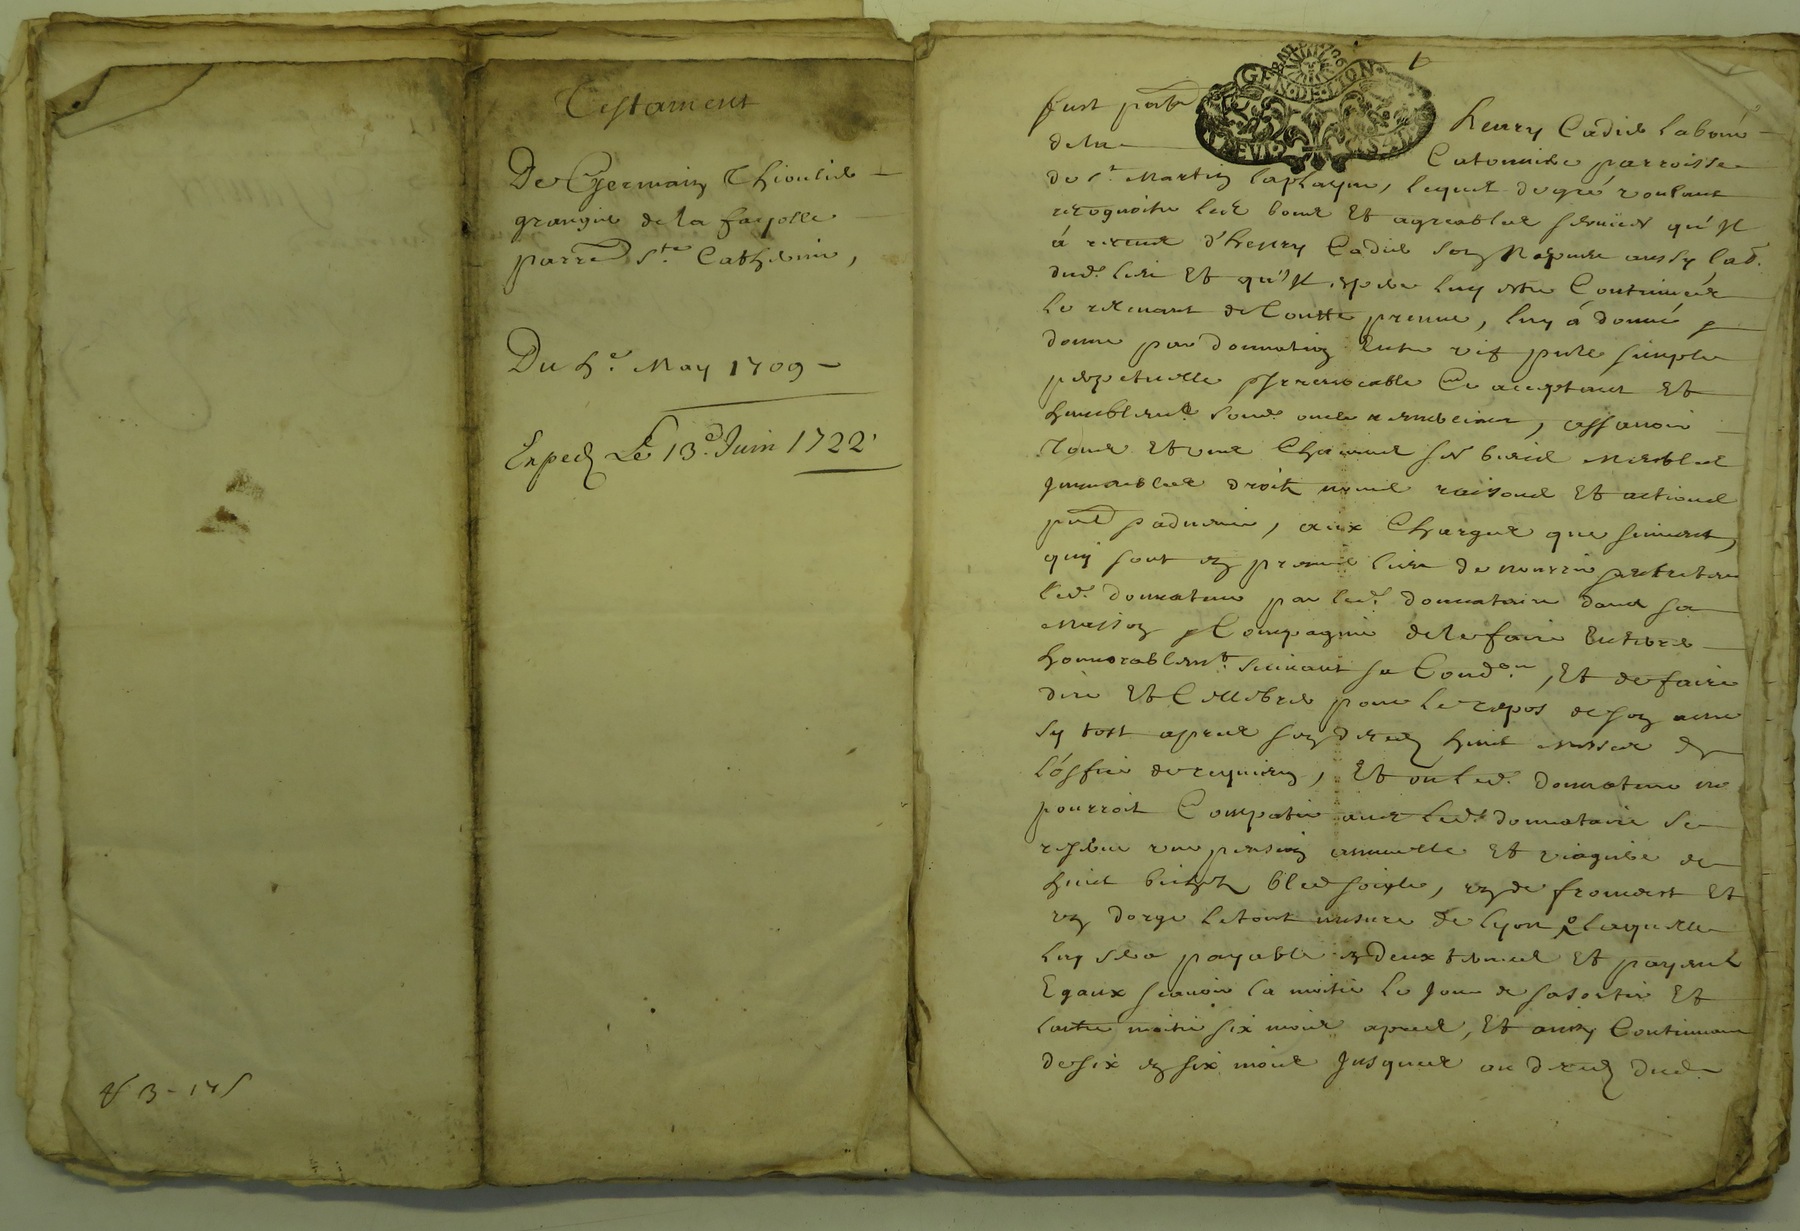 Testament
De Germain Thioulie
grangie de la fayolle
parre Ste Catherine,
Du 4e May 1709
Exped Le 13e Juin 1722
fust
GEN DE LYON
henry Cadie labour
dela Catonniere parroisse
de st Martin laplagne, lequel de gré voulant
recognoitre les bons Et agreables services qu'jl
á receus d'henry Cadie son Nepveu aussy lab.
dud. lieu Et qu'jl espere luy estre Continuéés
le relevant de toutte preuve, luy á donné &
donne par donnation Entre vif pure simple
perpetuelle jrrevocable Ce acceptant Et
humblemt sond. oncle remerciant, assavoir
tous Et uns Chacuns ses biens Meubles
jmmeubles droits noms raisons Et actions
pnts & advenir, aux Charges que suivent,
quy sont en premier lieu de nourrir & entretenir
led. donnateur par led. donnataire dans sa
Maison & Compagnie de le faire Enterrer
honnorablemt. suivant sa Condon, Et de faire
dire Et Cellebrer pour le repos de son ame
sy tost apres son deced huit Messes &
l'office de requiem, Et ou led. donnateur ne
pourroit Compatir avec led. donnataire se
reserve une pension annuelle Et viagere de
huit bichets bled soigle, un de froment Et
un dorge le tout mesure de lyon laquelle
luy sera payable en deux termes Et payemts
Egaux scavoir la moitie le jour de sa sortie Et
lautre moitie six mois apres, Et ainsy Continuant
de six en six mois jusques au deced dud.